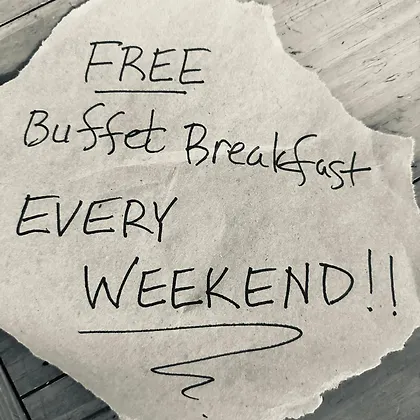 FREE
Buffet Breakfast
EVERY
WEEKEND!!